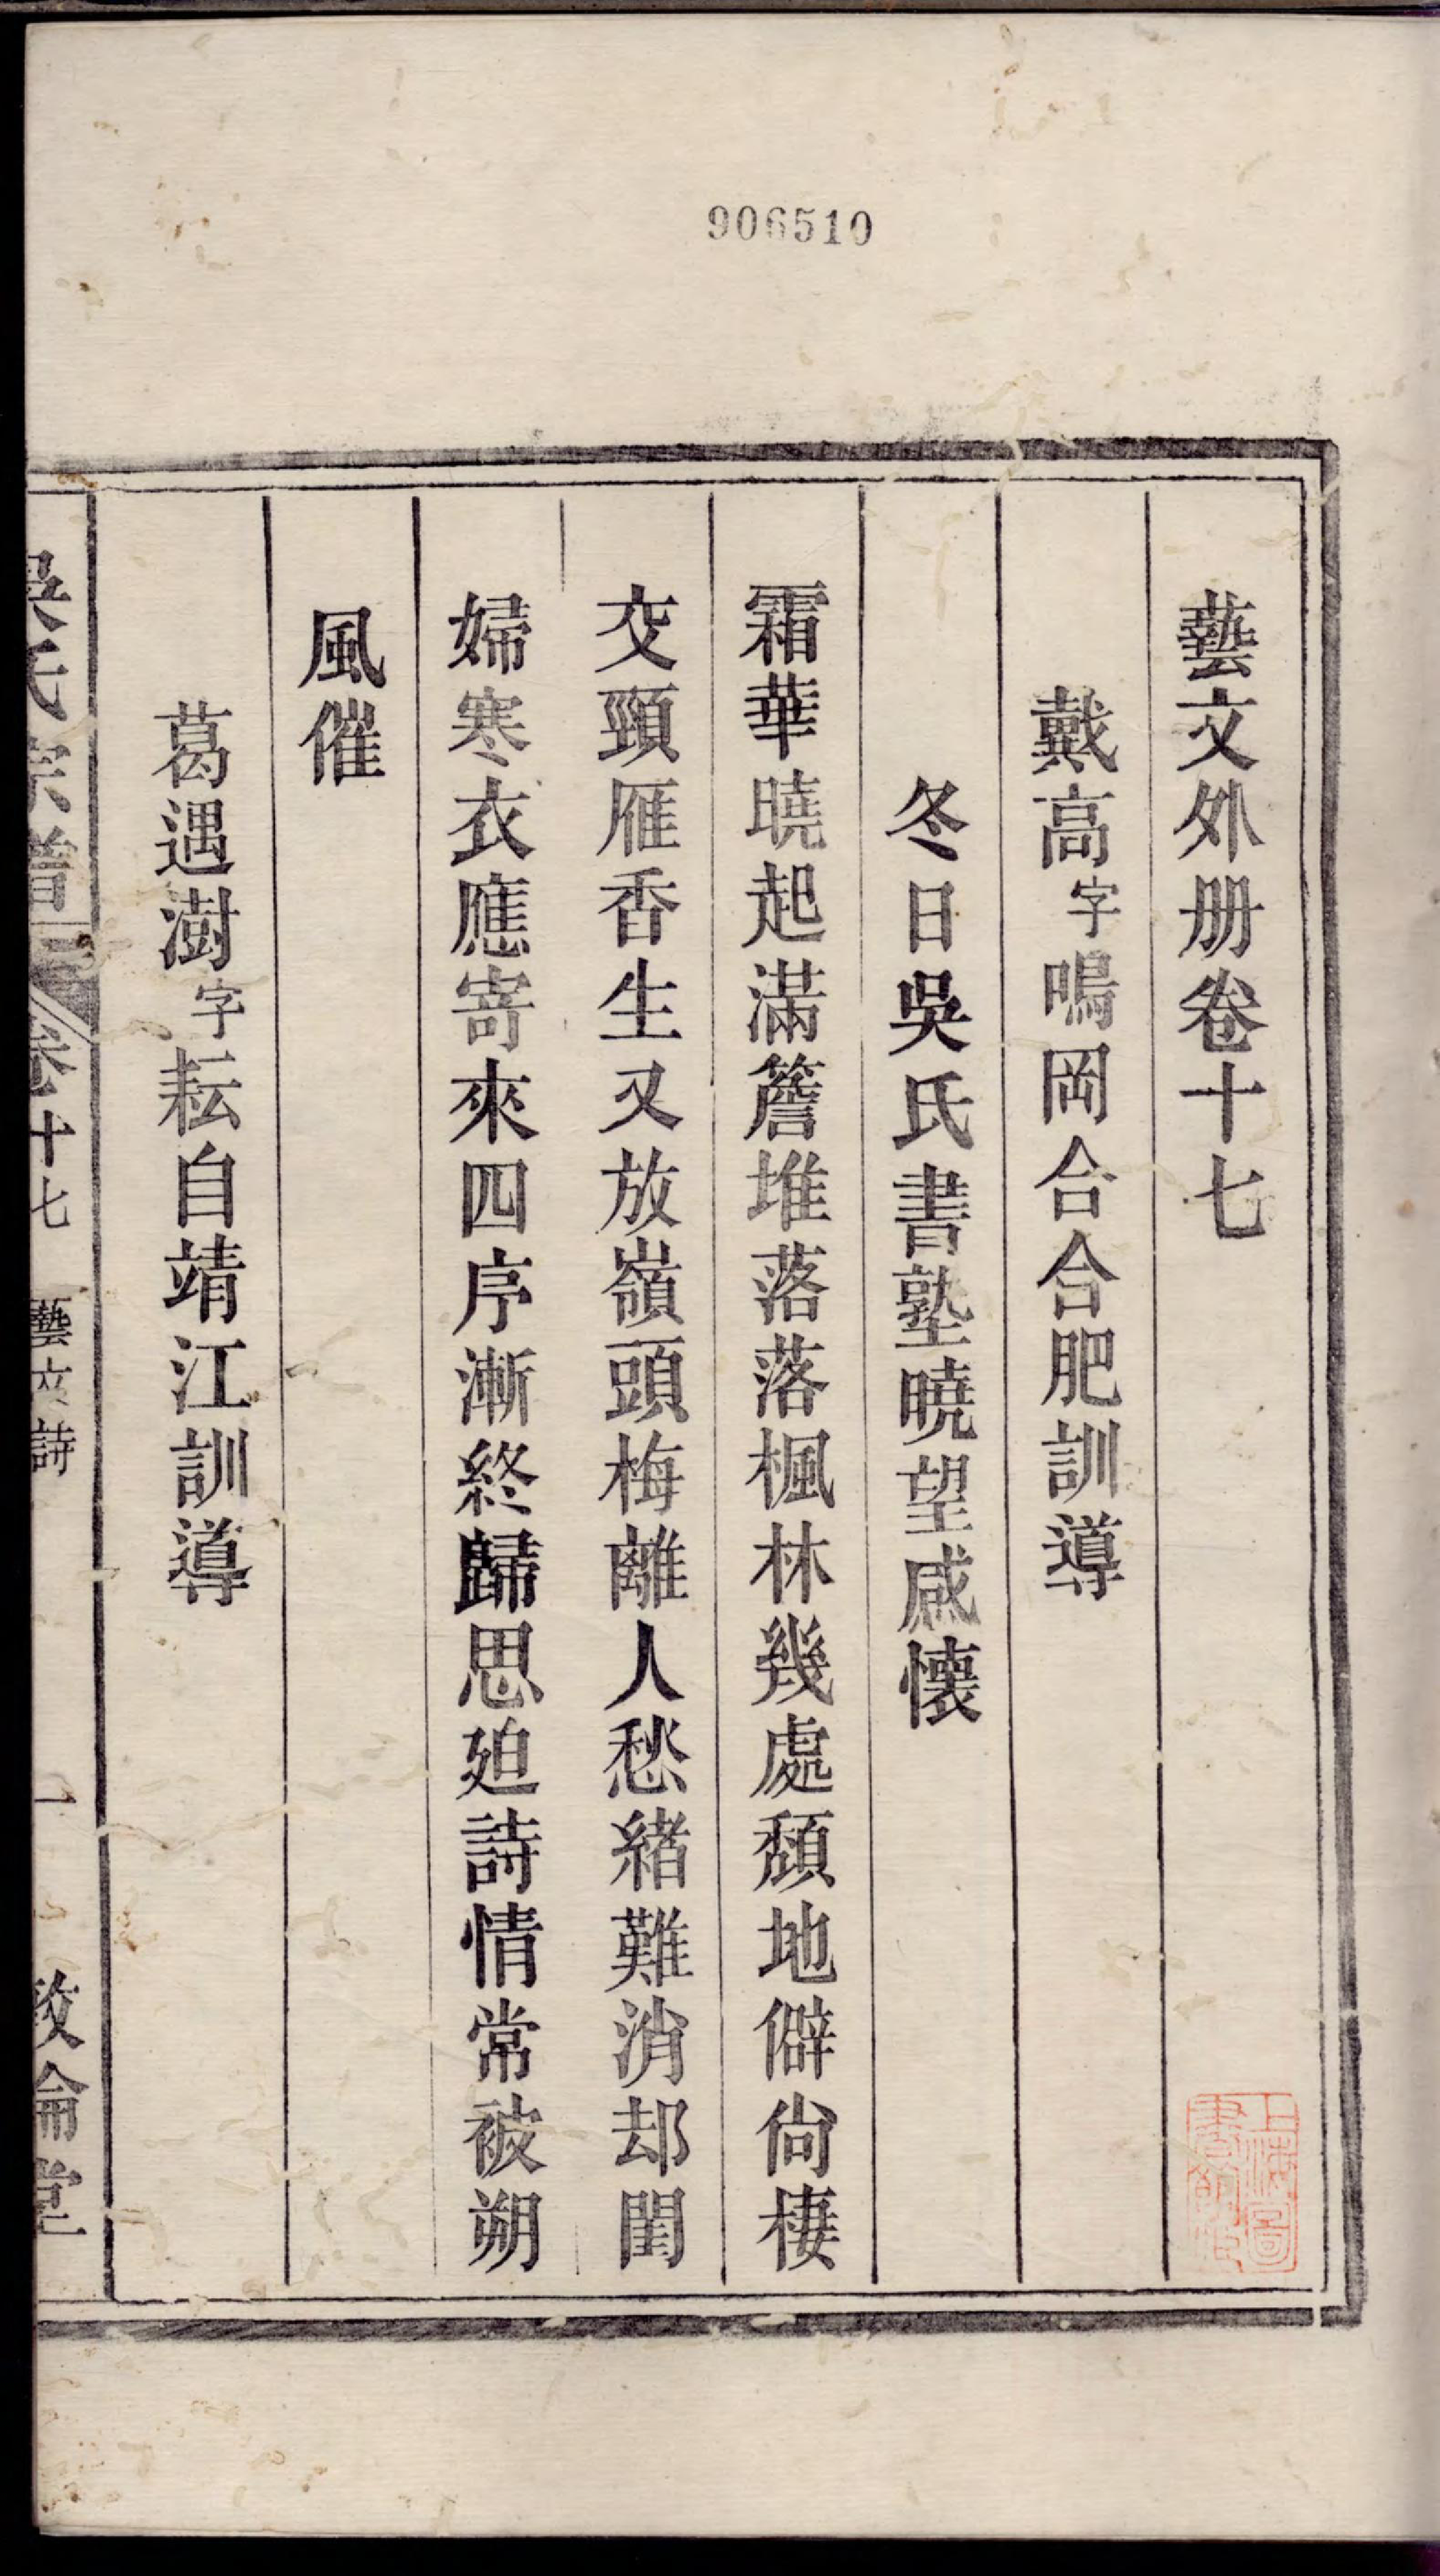 906510
藝文外册卷十七
戴高字鳴岡合合肥訓導
冬日吳氏書塾曉望感懷
霜華曉起滿簷堆落落楓林幾處頹地僻尙棲
交頸雁香生又放嶺頭梅離人愁緒難消却閨
婦寒衣應寄來四序漸終歸思廹詩情常被朔
風催
葛遇澍字耘自靖江訓導
吳氏宗譜 卷十七 藝文詩 一 敦倫堂
上海圖書館藏